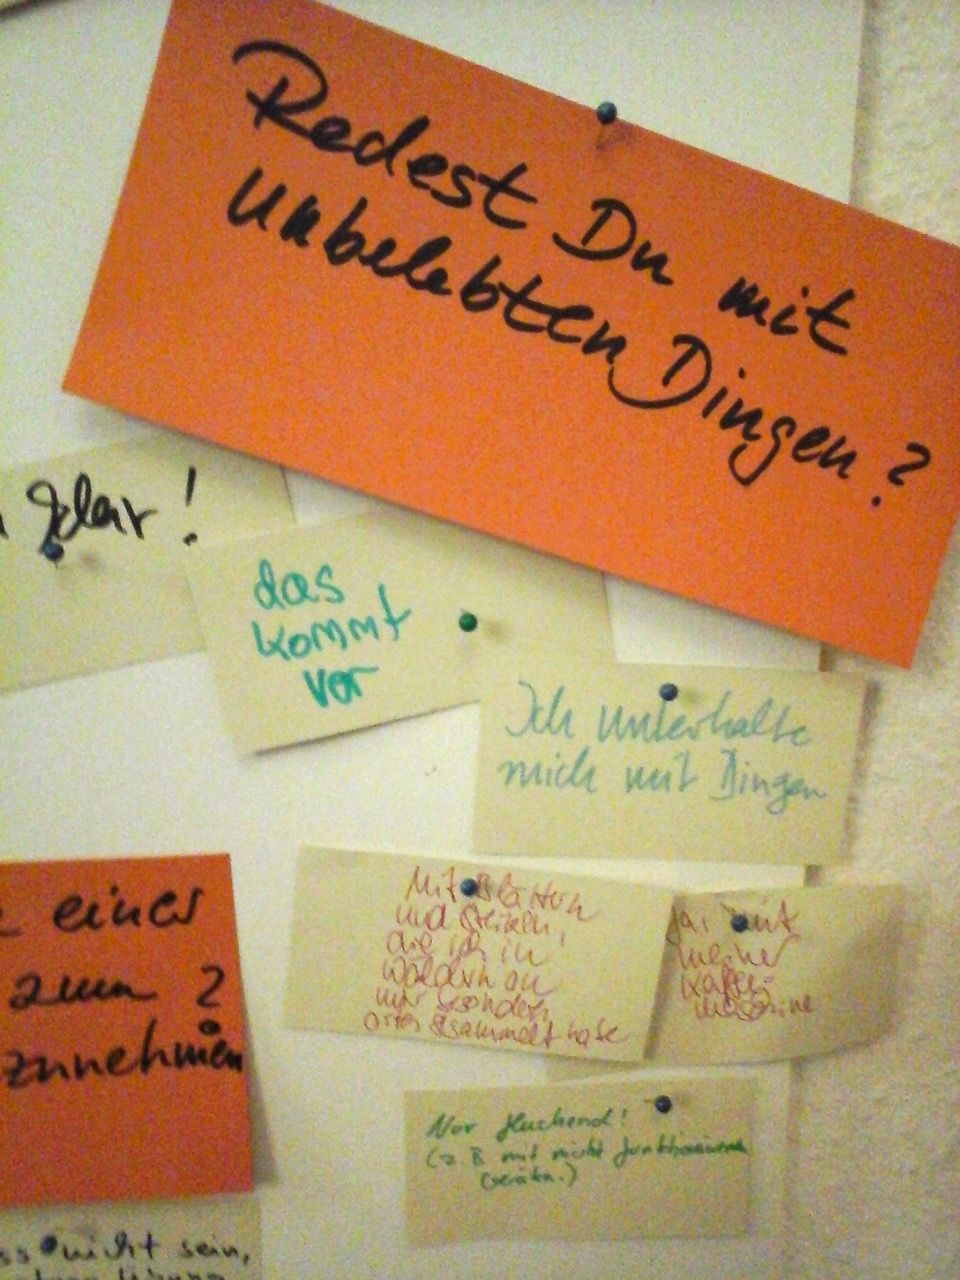 Redest Du mit
unbelebten Dingen?
klar!
das
kommt
vor
Ich unterhalte
mich mit Dingen
Mit Blättern
und Steinen,
die ich in
Wäldern an
mir besonderen
orten gesammelt habe
Ja! mit
meiner
Kaffee-
maschine
Nur fluchend!
(z. B mit nicht funktionieren
Geräten.)
einer
zum 2
zunehmen
ss nicht sein,